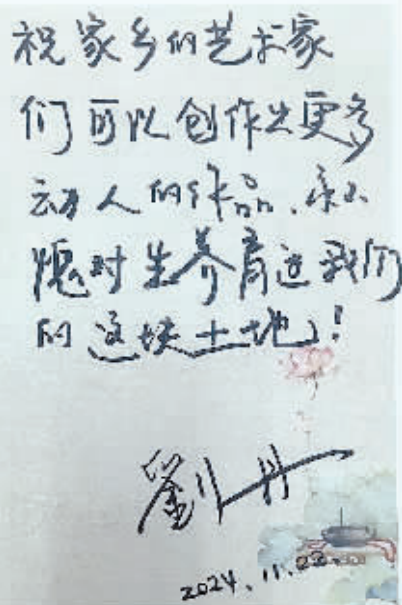 祝家乡的艺术家
们可以创作出更多
动人的作品、永不
愧对生养育过我们
的这块土地!
劉丹
2024.11.22.